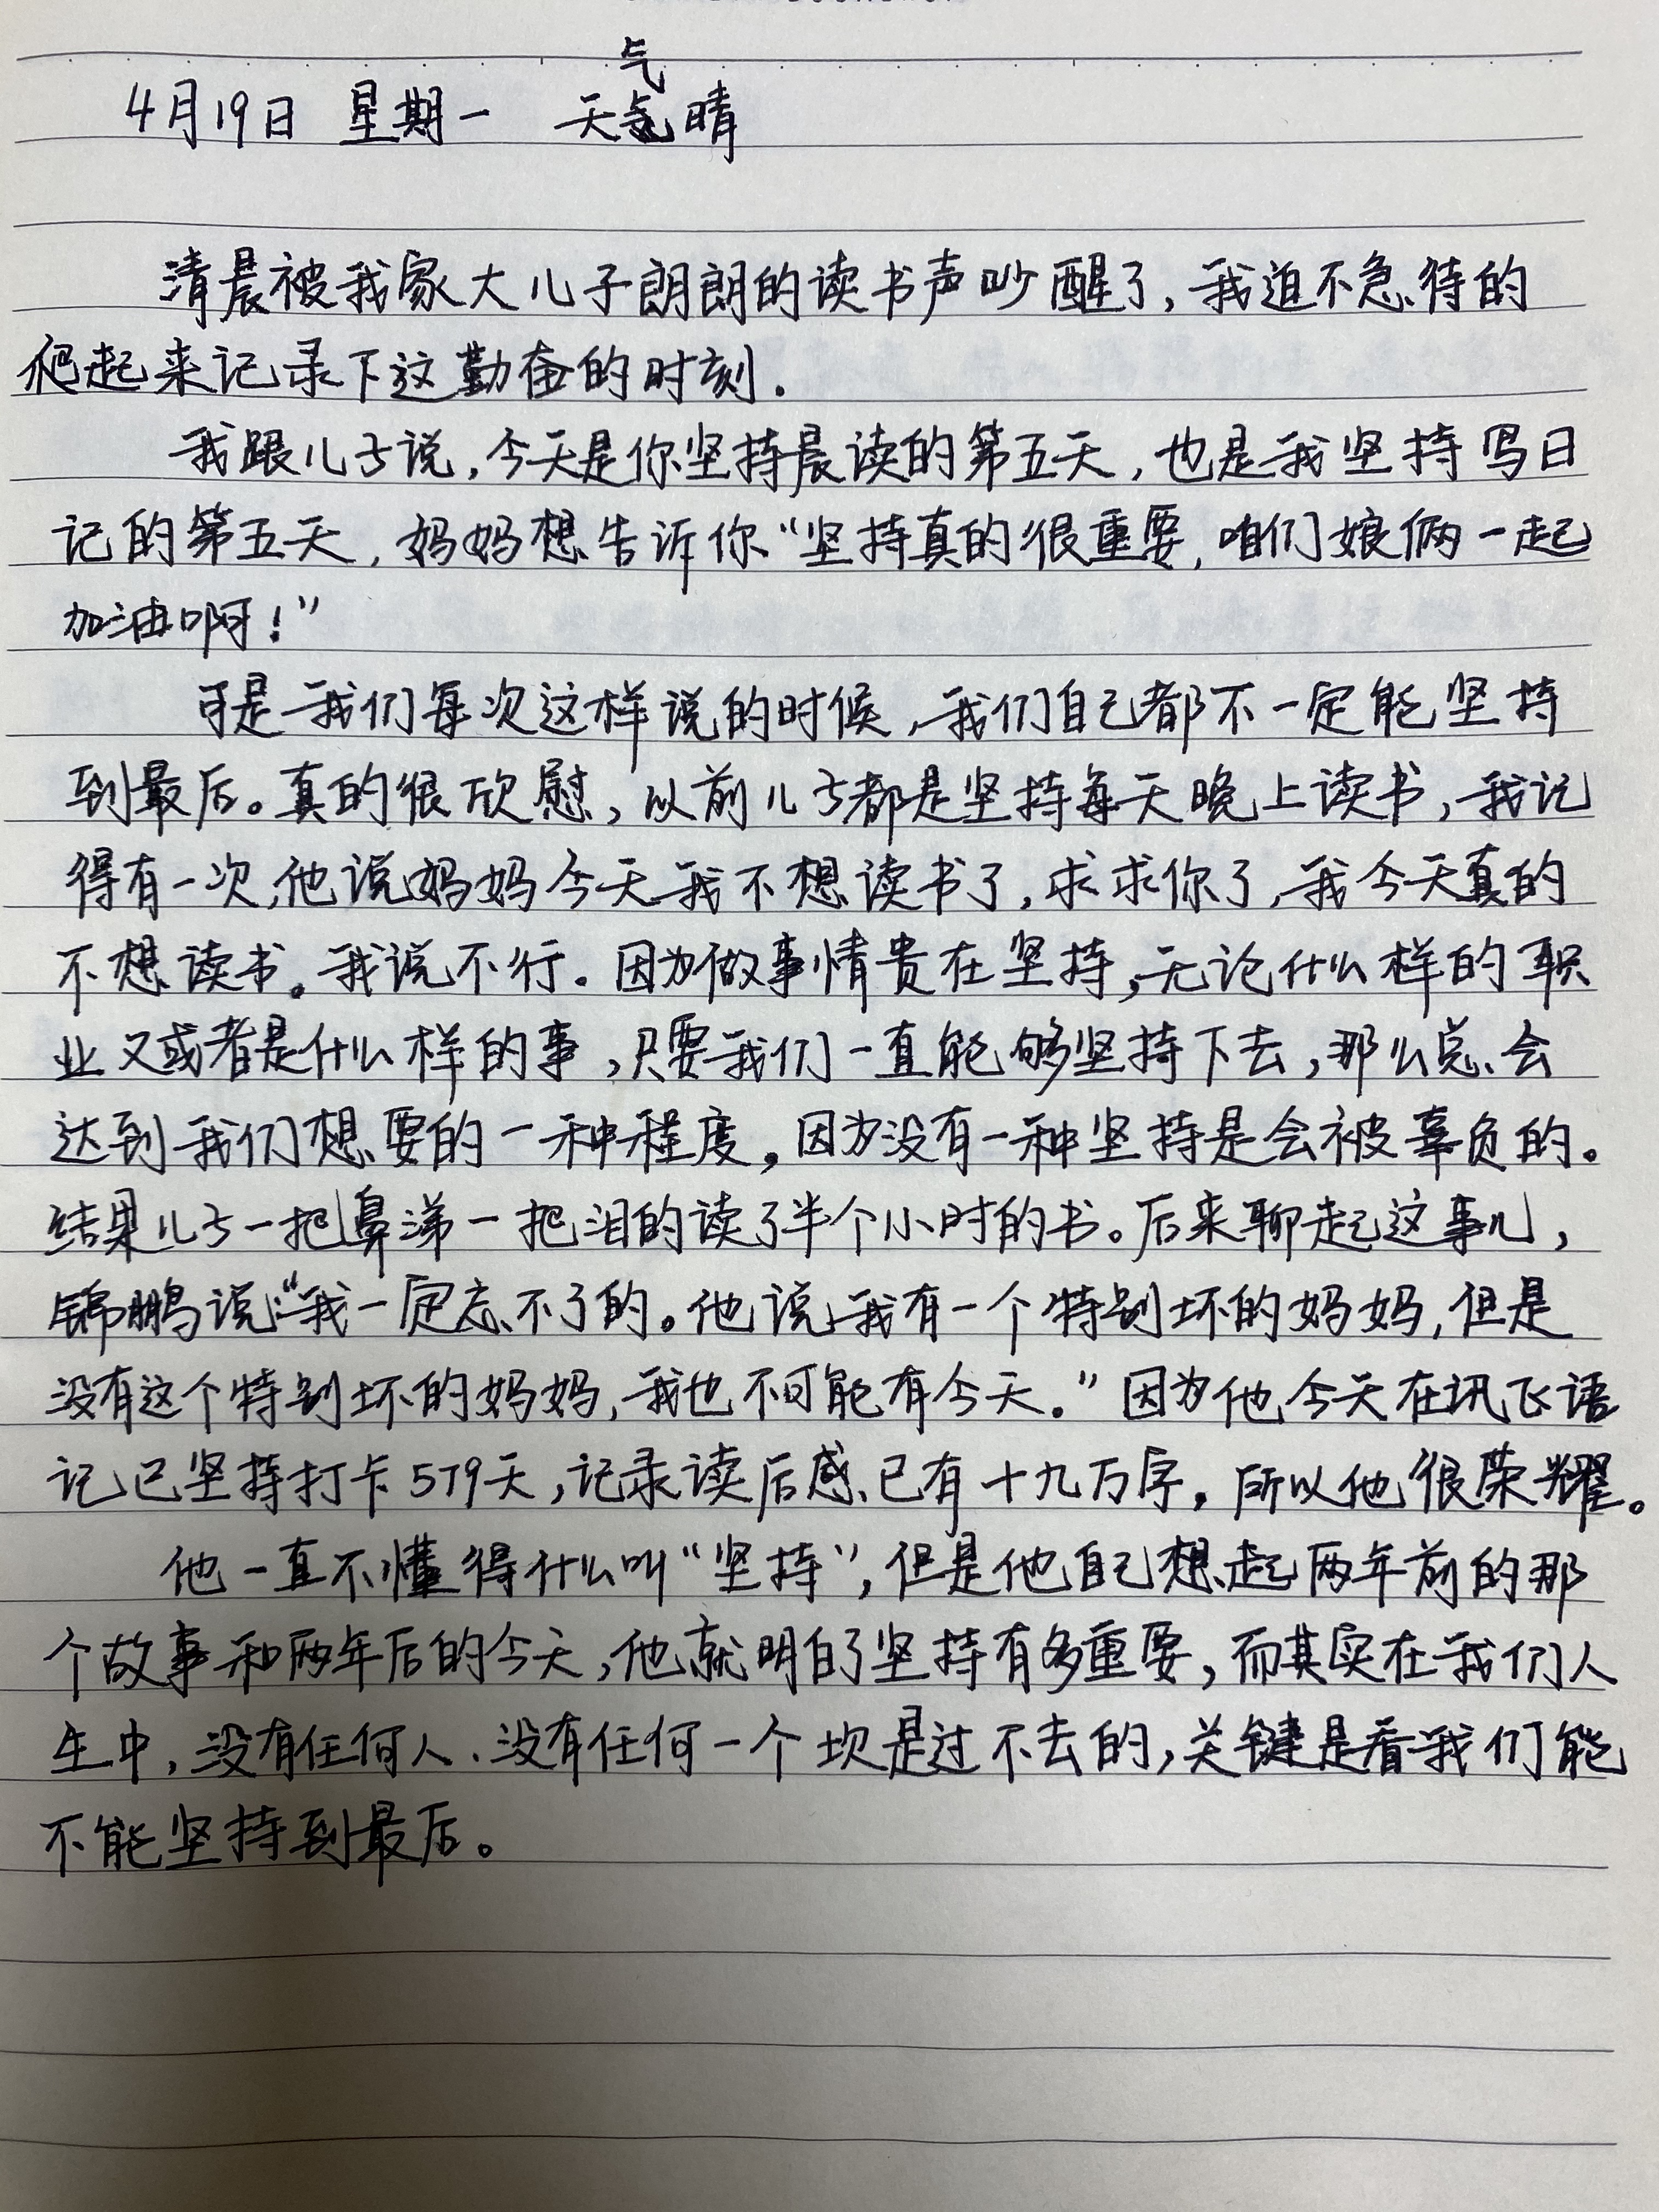 4月19日 星期一 天气晴
清晨被我家大儿子朗朗的读书声吵醒了,我迫不急待的
爬起来记录下这勤奋的时刻.
我跟儿子说,今天是你坚持晨读的第五天,也是我坚持写日
记的第五天,妈妈想告诉你“坚持真的很重要,咱们娘俩一起
加油啊!”
可是我们每次这样说的时候,我们自己都不一定能坚持
到最后。真的很欣慰,以前儿子都是坚持每天晚上读书,我记
得有一次,他说妈妈今天我不想读书了,求求你了,我今天真的
不想读书。我说不行.因为做事情贵在坚持,无论什么样的职
业又或者是什么样的事,只要我们一直能够坚持下去,那么总会
达到我们想要的一种程度。因为没有一种坚持是会被辜负的。
结果儿子一把鼻涕一把泪的读了半个小时的书。后来聊起这事儿,
锦鹏说:“我一定忘不了的。他说我有一个特别坏的妈妈,但是
没有这个特别坏的妈妈,我也不可能有今天。”因为他今天在讯飞语
记已坚持打卡579天,记录读后感已有十九万字。所以他很荣耀。
他一直不懂得什么叫“坚持”,但是他自己想起两年前的那
个故事和两年后的今天,他就明白了坚持有多重要,而其实在我们人
生中,没有任何人、没有任何一个坎是过不去的,关键是看我们能
不能坚持到最后。